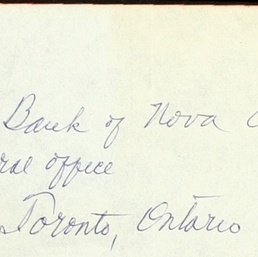 Bank of Nova
office
Toronto, Ontario